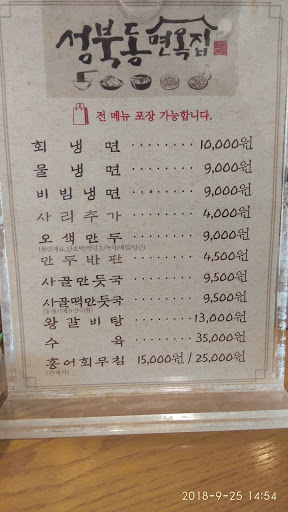 성북동면옥집
전 메뉴 포장 가능합니다.
회 냉 면 ········ 10,000원
물 냉 면 ········ 9,000원
비 빔 냉 면 ········ 9,000원
사 리 추 가 ········ 4,000원
오 색 만 두 ········ 9,000원
만 두 반 판 ········ 4,500원
사골만둣국 ········ 9,500원
사골떡만둣국 ········ 9,500원
왕 갈 비 탕 ········ 13,000원
수 육 ········ 35,000원
홍어회무침 15,000원 / 25,000원
2018-9-25 14:54